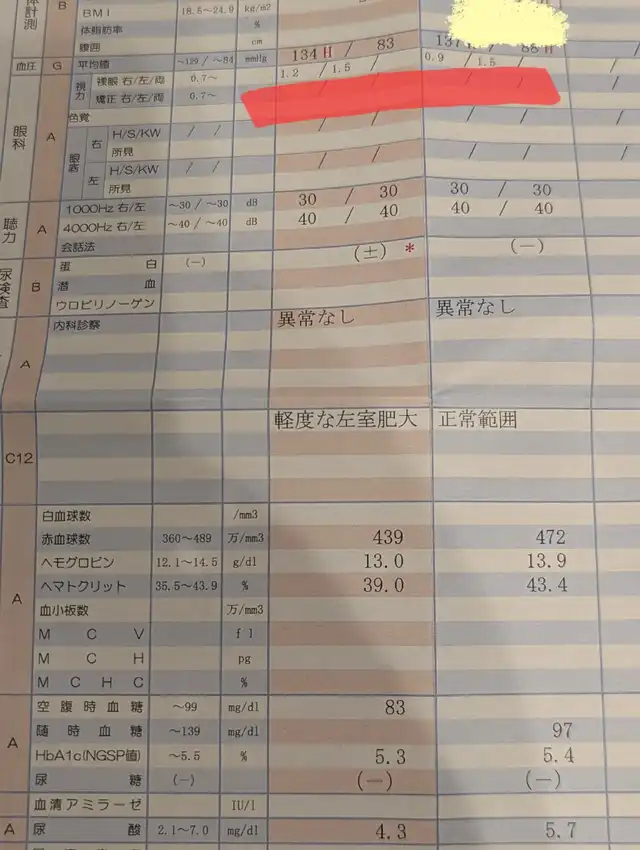 体計測 B
BMI 18.5~24.9 kg/m2
体脂肪率 %
腹囲 cm
血圧 G 平均値 ~129 / ~84 mmHg 134 H / 83 137 H / 88 H
眼科 A 視力 裸眼 右/左/両 0.7~ 1.2 / 1.5 / 0.9 / 1.5 /
矯正 右/左/両 0.7~
色覚
眼底 右 H/S/KW / / / / / /
所見
左 H/S/KW / / / / / /
所見
聴力 A 1000Hz 右/左 ~30 / ~30 dB 30 / 30 30 / 30
4000Hz 右/左 ~40 / ~40 dB 40 / 40 40 / 40
会話法
尿検査 B 蛋白 (-) (±) * (-)
潜血
ウロビリノーゲン
A 内科診察 異常なし 異常なし
C12 軽度な左室肥大 正常範囲
A 白血球数 /mm3
赤血球数 360~489 万/mm3 439 472
ヘモグロビン 12.1~14.5 g/dl 13.0 13.9
ヘマトクリット 35.5~43.9 % 39.0 43.4
血小板数 万/mm3
MCV fl
MCH pg
MCHC %
A 空腹時血糖 ~99 mg/dl 83
随時血糖 ~139 mg/dl 97
HbA1c(NGSP値) ~5.5 % 5.3 5.4
尿糖 (-) (-) (-)
血清アミラーゼ IU/l
A 尿酸 2.1~7.0 mg/dl 4.3 5.7